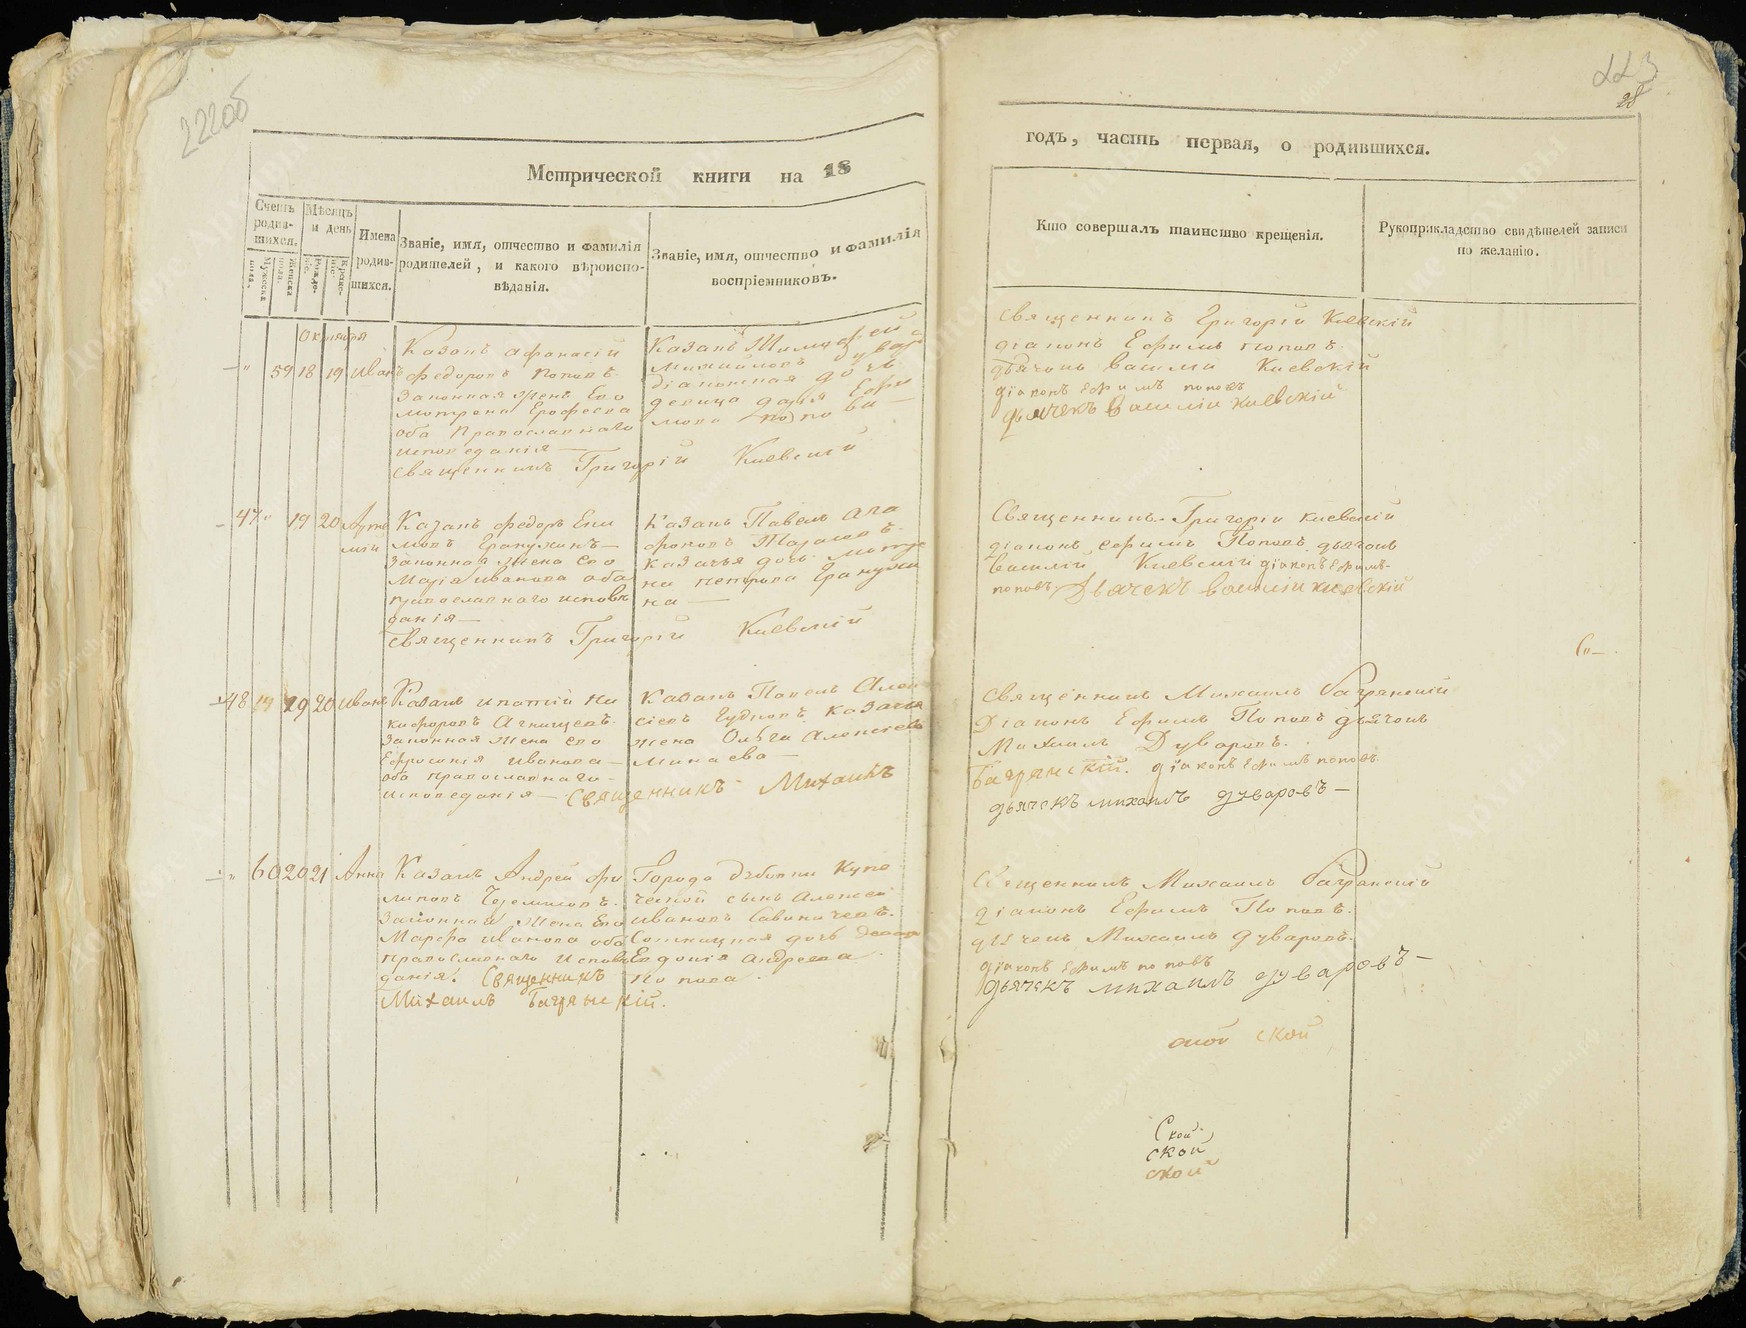 222об
Метрической книги на 18
Счетъ родив-шихся.
Мужеска пола.
Женска пола.
Мѣсяцъ и день
Рожде-нія.
Креще-нія.
Имена родив-шихся.
Званіе, имя, отчество и фамилія
родителей, и какого вѣроиспо-
вѣданія.
Званіе, имя, отчество и фамилія
воспріемниковъ.
Октября
59 18 19 Иванъ
Казакъ Афонасій
Федоровъ Поповъ
законная жена Его
Матрона Ерофеева
оба Православнаго
исповеданія —
священникъ Григорій Киевскій
Казакъ Тимофей
Михайловъ
діаконская дочь
девица Дарія Ефи
мова Попова —
47 19 20 Арте
мій
Казакъ Федоръ Епи
мовъ
законная жена Его
Марія Иванова оба
православнаго исповѣ
данія —
священникъ Григорій Киевскій
Казакъ Павелъ Ага
фоновъ
казачья дочь Матре
на Петрова
на —
48 19 20 Иванъ
Казакъ Ипатій Ни
кифоровъ
законная жена Его
Ефросинія Иванова —
оба православнаго
исповеданія — Священникъ Михаилъ
Казакъ Павелъ Алек
сіевъ Гудковъ казачья
жена Ольга Алексіева
Минаева —
60 20 21 Анна
Казакъ Андрей Фи
липовъ
законная жена Его
Марфа Иванова оба
православнаго исповѣ
данія. Священникъ
Михаилъ Багрянскій.
Города Дубовки купе
ческой сынъ Алексей
Ивановъ
Сотницкая дочь девица
Евдокія Андреева
Попова.
223
28
годъ, часть первая, о родившихся.
Кто совершалъ таинство крещенія.
Рукоприкладство свидѣтелей записи
по желанію.
Священникъ Григорій Киевскій
діаконъ Ефимъ Поповъ
дьячокъ Василій Киевскій
діаконъ Ефимъ Поповъ
дьячекъ Василіи Киевскій
Священникъ Григорій Киевскій
діаконъ Ефимъ Поповъ дьячокъ
Василій Киевскій діаконъ Ефимъ
поповъ Дьячекъ Василіи Киевскій
Священникъ Михаилъ Багрянскій
Діаконъ Ефимъ Поповъ дьячокъ
Михаилъ Дуваровъ.
Багрянскій. діаконъ Ефимъ поповъ
дьячекъ михаилъ дуваровъ —
Священникъ Михаилъ Багрянскій
діаконъ Ефимъ Поповъ.
дьячокъ Михаилъ Дуваровъ.
діаконъ Ефимъ поповъ
дьячекъ михаилъ дуваровъ —
ской ской
Ской
ской
ской